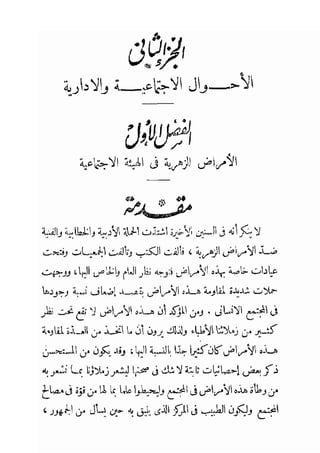 الجزء الثانى
الأحوال الاجتماعية والادارية
الفصل الأول
الأمراض الزهرية فى الهيئة الاجتماعية
مقدمة
لا ينكر أنه فى السنين الأخيرة اشتدت الحملة الأدبية والخطابية والفنية
ضد الأمراض الزهرية ، فألفت الكتب وتألفت الجمعيات وفتحت
عيادات خاصة بهذه الأمراض فتوجه نظر العام والخاص اليها، ووجهت
حملات شديدة لمقاومة هذه الأمراض بقصد إضعاف نسبة وجودها
فى المجتمع الانسانى . ومن المؤكد أن هذه الأمراض لا تقع تحت نظر
كثير من زملائنا الأطباء ولذلك يرون أن ما اتخذ من العدة لمقاومة
هذه الأمراض كان كثيرا جدا بالنسبة اليها، وقد يكون من المستحسن
ذكر بعض إحصائيات ثابتة لا شك فى صحتها ليشعر زملاؤنا بما نشعر به
من وطأة هذه الأمراض فى المجتمع وليحيطوا علما بما لها من قوة فى مصالح
المجتمع وليكون الطبيب فى المركز الذى يليق به حين يسأل من الجمهور ،